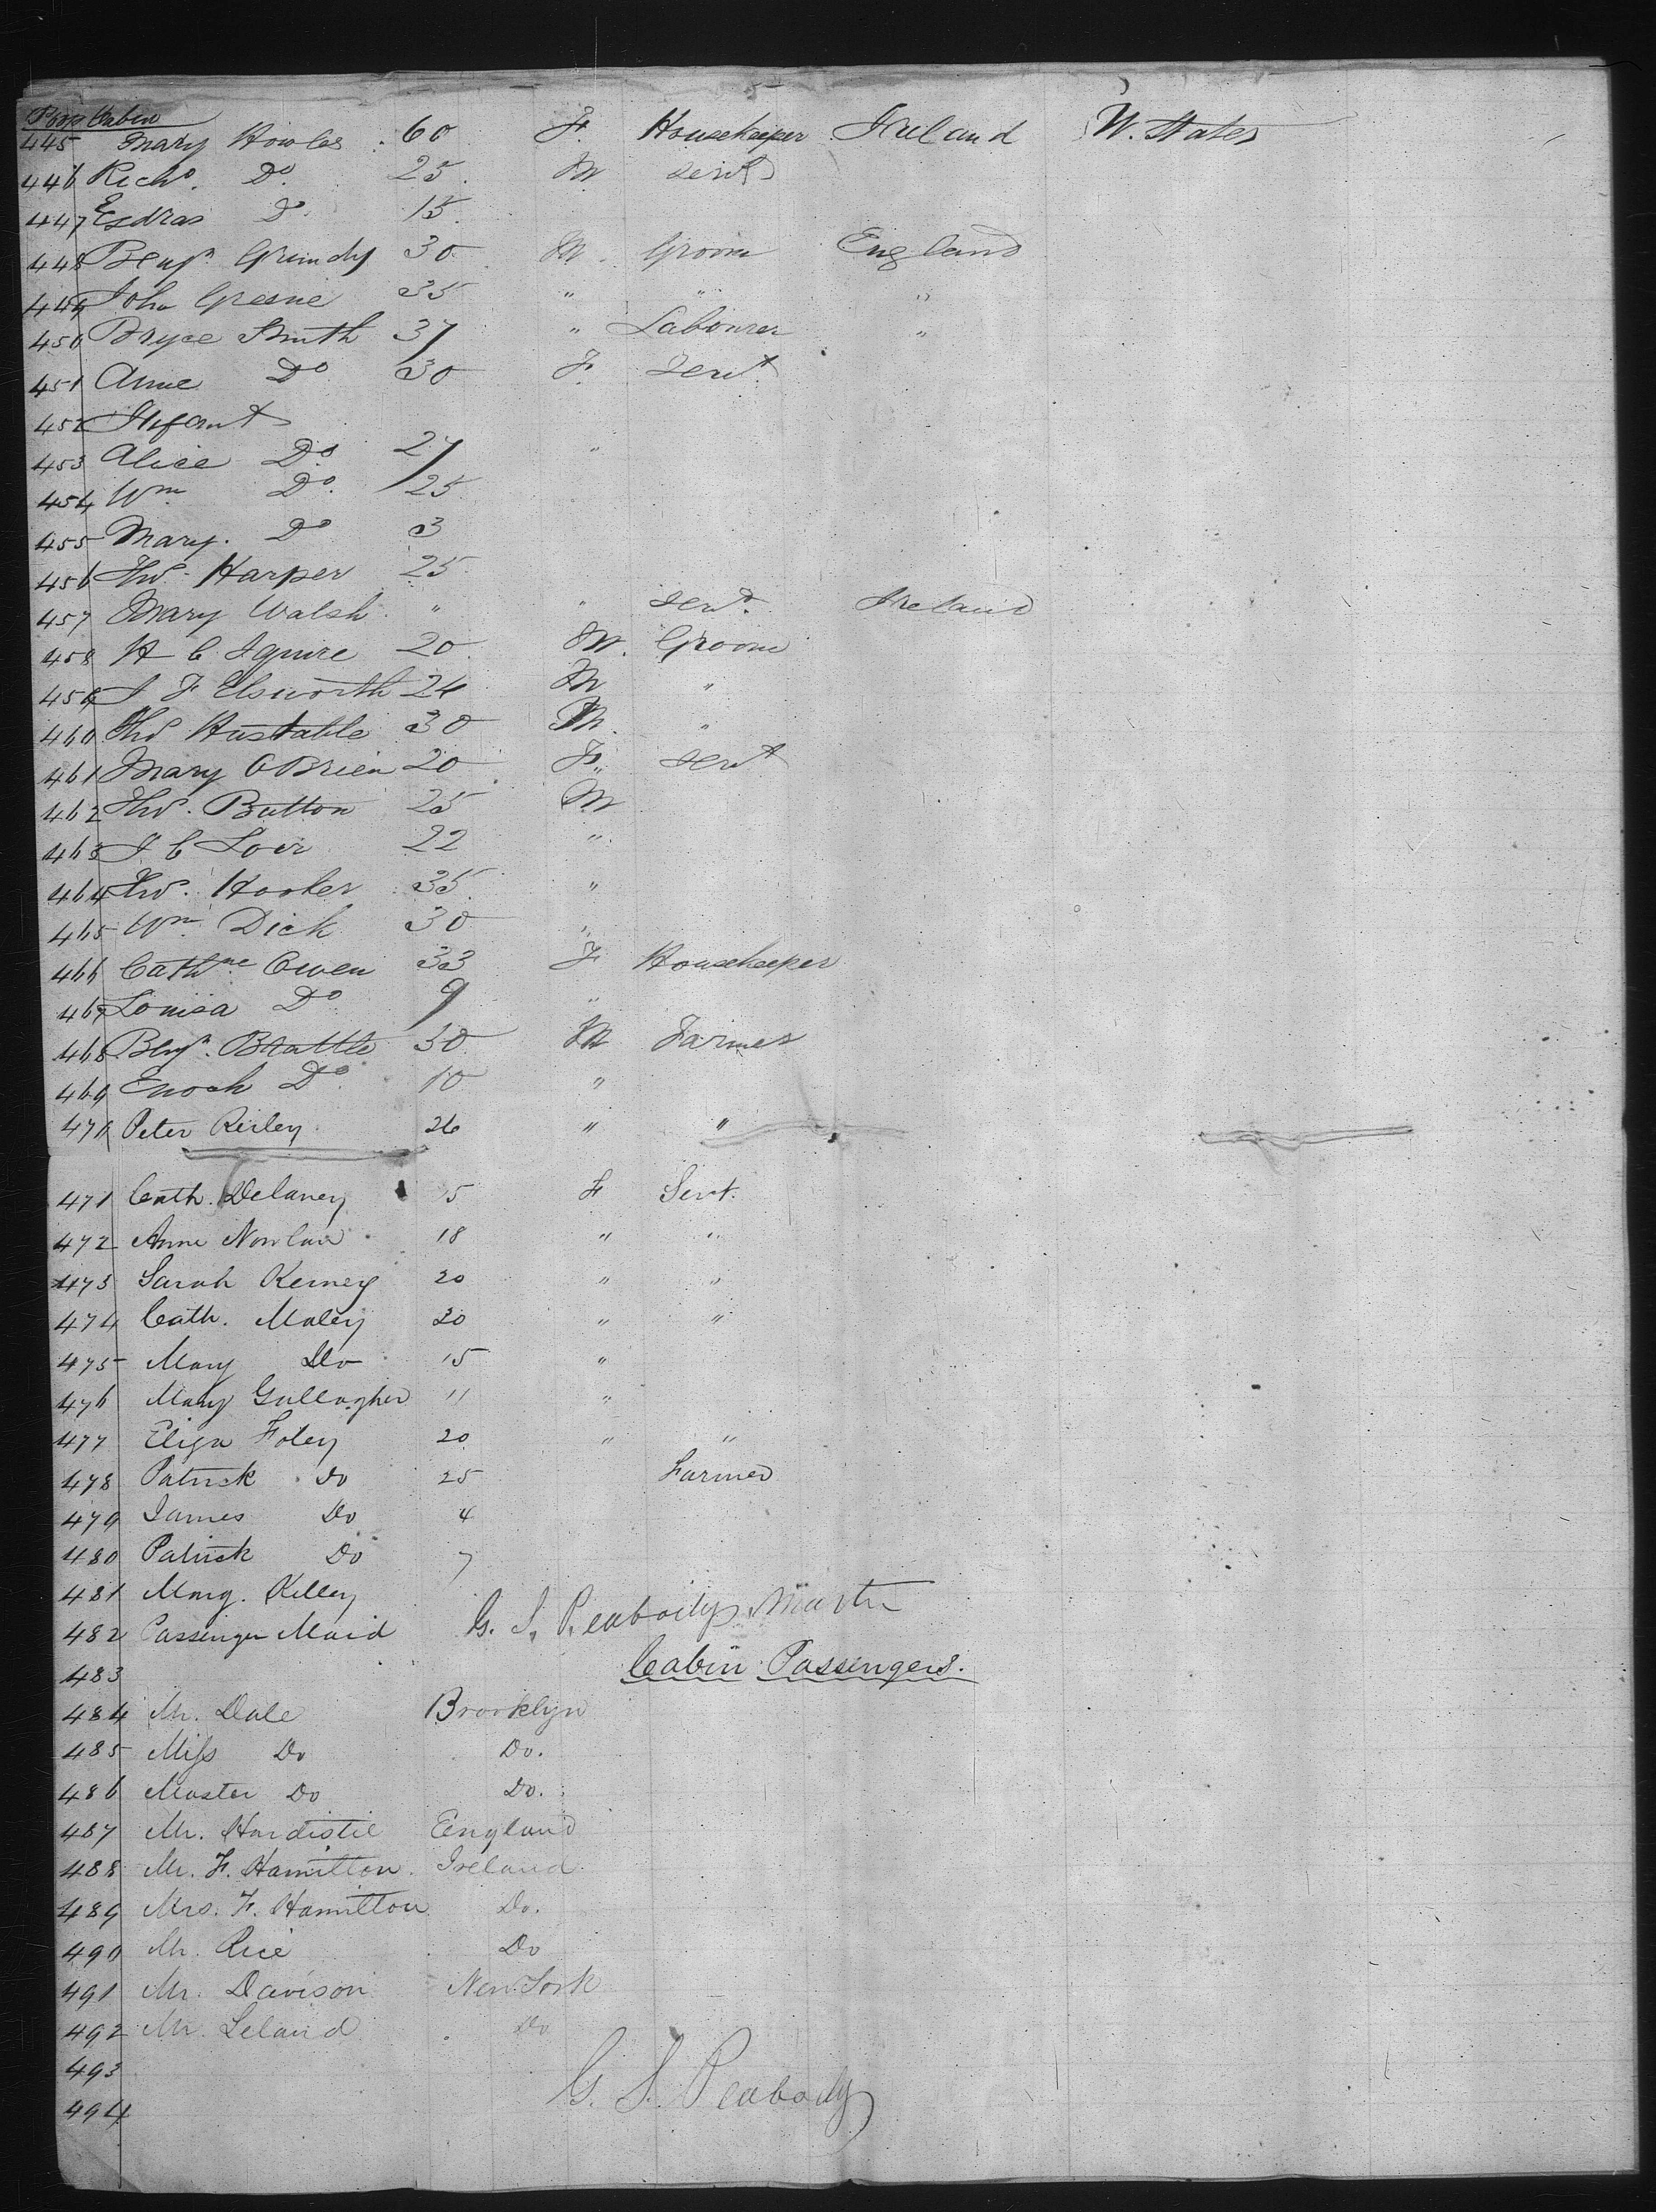 Poop Cabin
445 Mary Howles 60 F. Housekeeper Ireland U. States
446 Richd. Do. 25 M Servt
447 Esdras Do. 15
448 Benjn. Grundy 30 M. Groom England
449 John Greene 35 " " "
450 Bryce Smith 37 " Labourer "
451 Anne Do 30 F. Servt
452 Infant
453 Alice Do. 27 "
454 Wm Do. 25
455 Mary. Do 3
456 Thos. Harper 25
457 Mary Walsh " " Servt. Ireland
458 H C Squire 20 M. Groom
459 J F Elsworth 24 M "
460 Thos Hustable 30 M. "
461 Mary OBrien 20 F. Servt
462 Thos. Button 25 M
463 J C Loer 22 "
464 Thos. Hooker 35 "
465 Wm Dick 30 "
466 Cathne Owen 33 F Housekeeper
467 Louisa Do 9 "
468 Benjn. Brattle 30 M Farmer
469 Enoch Do 10 "
470 Peter Reiley 26 " "
471 Cath. Delaney 15 F Servt.
472 Anne Nowlan 18 " "
473 Sarah Kerney 20 " "
474 Cath. Maley 20 " "
475 Mary Do 15 "
476 Mary Gallagher 11 "
477 Eliza Foley 20 " "
478 Patrick Do 25 Farmer
479 James Do 4
480 Patrick Do 7
481 Marg. Kelley
482 Passenger Maid G. S. Peabody Master
483 Cabin Passengers.
484 Mr. Dale Brooklyn
485 Miss Do Do.
486 Master Do Do.
487 Mr. Hardistie England
488 Mr. F. Hamilton. Ireland
489 Mrs. F. Hamilton Do.
490 Mr. Rice Do
491 Mr. Davison New York
492 Mr. Leland Do
493
494 G. S. Peabody